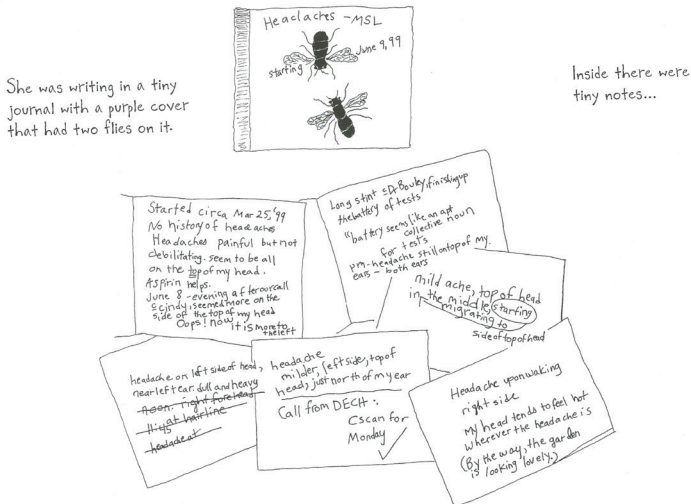 She was writing in a tiny
journal with a purple cover
that had two flies on it.
Headaches - MSL
starting
June 9, 99
Inside there were
tiny notes...
Started circa Mar 25, '99
No history of headaches
Headaches painful but not
debilitating. seem to be all
on the top of my head.
Aspirin helps.
June 8 - evening after our call
c̄ cindy, seemed more on the
side of the top of my head
Oops! now it is more to
the left
Long stint c̄ Dr Bouley, finishing up
the battery of tests
"battery seems like an apt
collective noun
for tests
pm - headache still on top of my
ears - both ears
mild ache, top of head
in the middle, starting
migrating to
side of top of head
headache on left side of head,
near left ear. dull and heavy
noon. right forehead
at hairline
headache at
headache
milder, left side, top of
head, just north of my ear
Call from DECH:
C scan for
Monday
Headache upon waking
right side
My head tends to feel hot
wherever the headache is
(By the way, the garden
is looking lovely.)